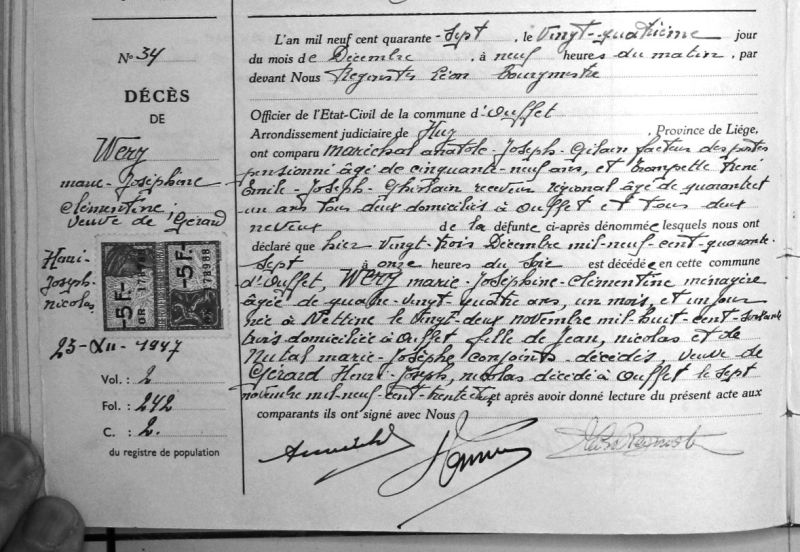 N° 34
DÉCÈS
DE
Wery
marie-Joséphine
Clémentine
veuve de Gérard
Henri-
Joseph-
nicolas
5 F-
-5 F-
23-XII-1947
Vol. : 2
Fol. : 242
C. : 2.
du registre de population
L'an mil neuf cent quarante-sept, le vingt-quatrième jour
du mois de Décembre, à neuf heures du matin, par
devant Nous Léon bourgmestre
Officier de l'Etat-Civil de la commune d'Ouffet
Arrondissement judiciaire de Huy, Province de Liége,
ont comparu maréchal anatole-Joseph-Gilain facteur des postes
pensionné âgé de cinquante-neuf ans, et trompette René
Emile-Joseph-Ghislain receveur régional âgé de quarante et
un ans tous deux domiciliés à Ouffet et tous deux
neveux de la défunte ci-après dénommée lesquels nous ont
déclaré que hier vingt-trois Décembre mil-neuf-cent-quarante-
sept à onze heures du soir est décédée en cette commune
d'Ouffet, Wery marie-Joséphine-Clémentine ménagère
âgée de quatre-vingt quatre ans, un mois, et un jour
née à le vingt-deux novembre mil-huit-cent-soixante
trois domiciliée à Ouffet fille de Jean, nicolas et de
marie-Josèphe conjoints-décédés, veuve de
Gérard Henri-Joseph, nicolas décédé à Ouffet le sept
novembre mil-neuf-cent-trente et après avoir donné lecture du présent acte aux
comparants ils ont signé avec Nous